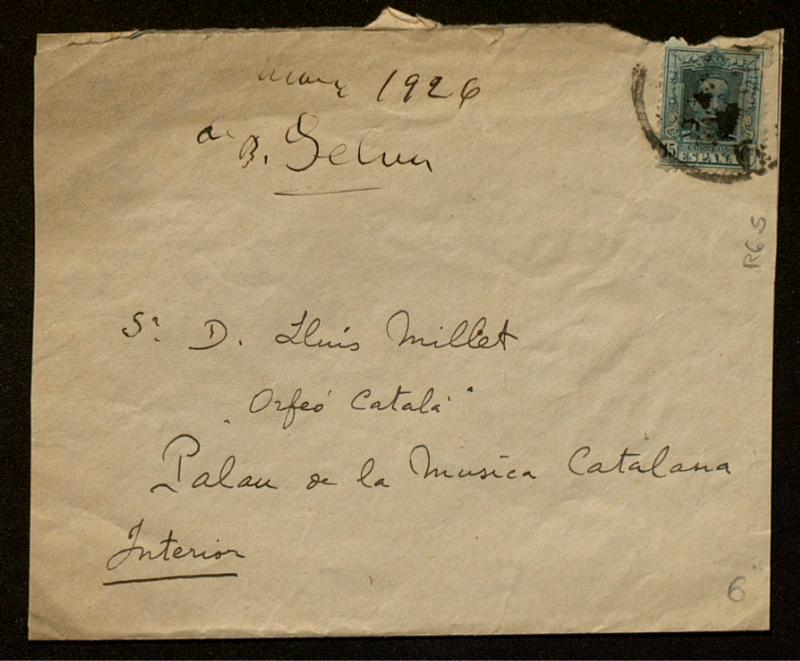 març 1926
de B. Selva
CORREOS
15 ESPAÑA
R6.5
Sr. D. Lluís Millet
"Orfeó Català"
Palau de la Musica Catalana
Interior
6